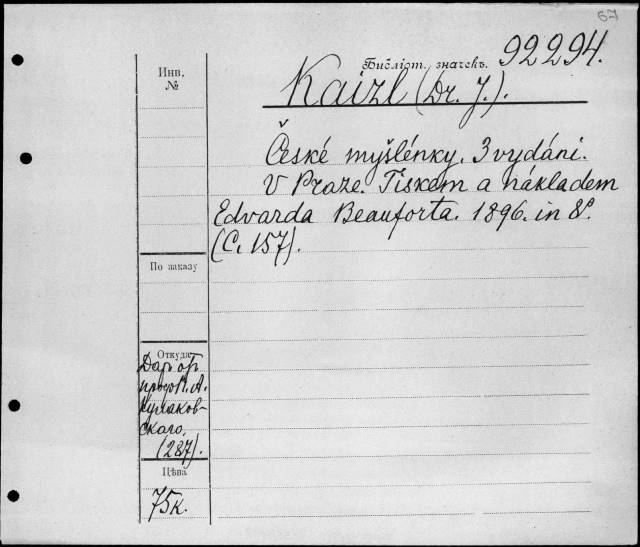 Библіот. значекъ. 92294.
Инв. №
Kaizl (Dr. J.).
České myšlénky. 3 vydáni.
V Praze. Tiskem a nákladem
Edvarda Beauforta. 1896. in 8º.
(C. 157).
По заказу
Откуда
Даръ отъ
проф. П. А.
Кулаков-
скаго.
(287).
Цѣна
75к.